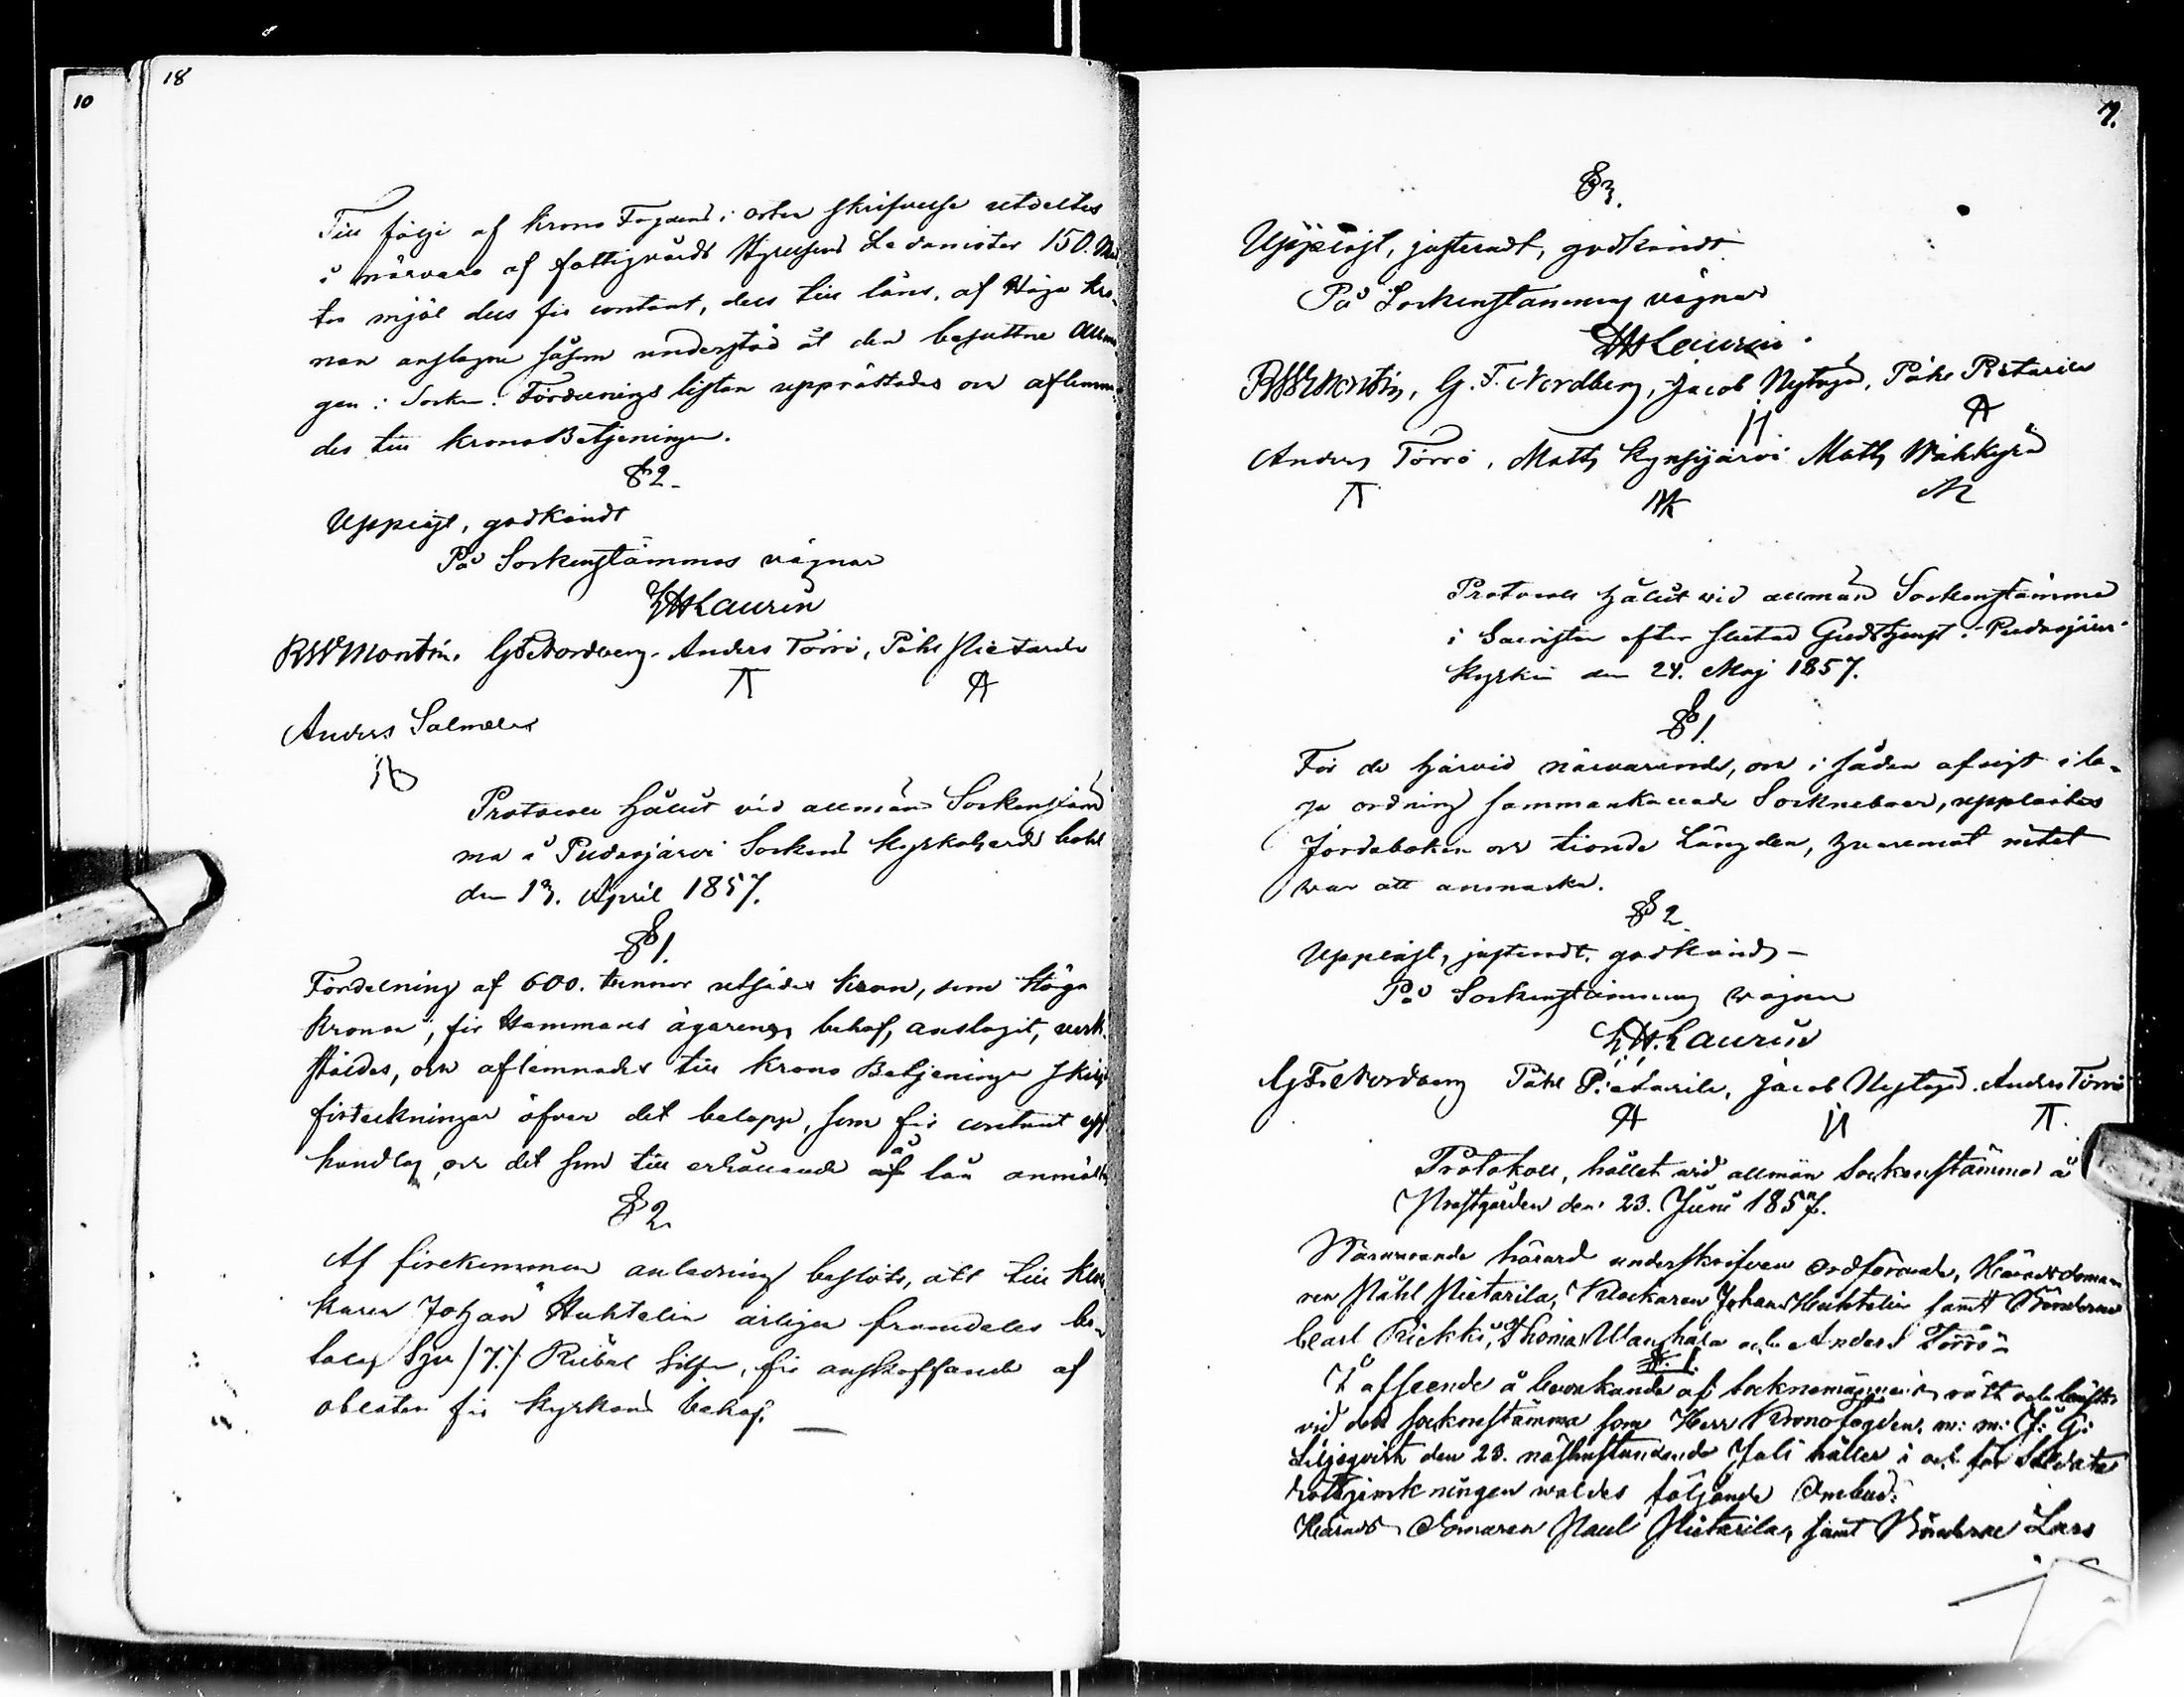 10
18
Till följe af Krono Fogdens i orten skrifvelse utdeltes
i närvaro af fattigvårds Styrelsens Ledamöter 150. Mat-
tor mjöl dels för contant, dels till låns, af Höga Kro-
nan anslagne såsom understöd åt den behöttne Allmo-
gen i Socken. Fördelnings listan upprättades och aflemna-
des till KronoBetjeningen.
§ 2.
Uppläst, godkändt
På Sockenstämmos vägnar
Laurin
Montin, Nordberg. Anders Törrö, Påhl Pietarila
Anders Salmela
Protocoll hållit vid allmän Sockenstäm
ma å Pudasjärvi Sockens Kyrkoherds bohl
den 13. April 1857.
§ 1.
Fördelning af 600. tunnor utsädes Korn, som Höga
Kronan, för Hemmans ägarens behof, anslagit, verk-
ställdes, och aflemnades till Krono Betjeningen
förteckningar öfver det belopp, som för contant
handlag, och det som till erhållande af å lån anmält
§ 2.
Af förekommen anledning beslöts, att till Kloc-
karen Johan Huhtelin årligen framdeles be-
talas Sju /7./ Rubel Silfer, för anskaffande af
oblater för Kyrkans behof. —
7.
§ 3.
Uppläst, justeradt, godkändt
På Sockenstämmans vägnar
Laurin
Montin, G. F. Nordberg, Jacob Nytagd, Påhl Pietarila
Anders Törrö, Matts Kynsijärvi Matts
Protocoll hållit vid allmän Sockenstämma
i Sacristian efter slutad Gudstjenst i Pudasjärvi
Kyrka den 24. Maj 1857.
§ 1.
För de härvid närvarande, och i sådan afsigt i la-
ga ordning sammankallade Sockneboer, upplästes
Jordaboken och tionde Längden, hvaremot intet
war att anmärka.
§ 2.
Uppläst, justeradt, godkänds —
På Sockenstämmans wägnar
Laurin
G F Nordberg Påhl Pietarila, Jacob Nytagd. Anders Törrö
Protokoll, hållet vid allmän Sockenstämma å
Prostgården den 23. Juni 1857.
Närwarande härwid underskrifven Ordförande, Häradsdoma-
ren Påhl Pietarila, Klockaren Johan Huhtelin samt Bönderne
Carl Riekki, Thomas och Anders Törrö
§. 1.
I afseende å bevakande af socknemännens rätt och bästa
vid den sockenstämma som Herr Kronofogden, m: m: J: G:
Liljeqvist den 23. nästinstundande Juli håller i och för Soldate
rotejemkningen waldes följande Ombud:
Härads Domaren Paul Pietarila, samt Bönderne Lars